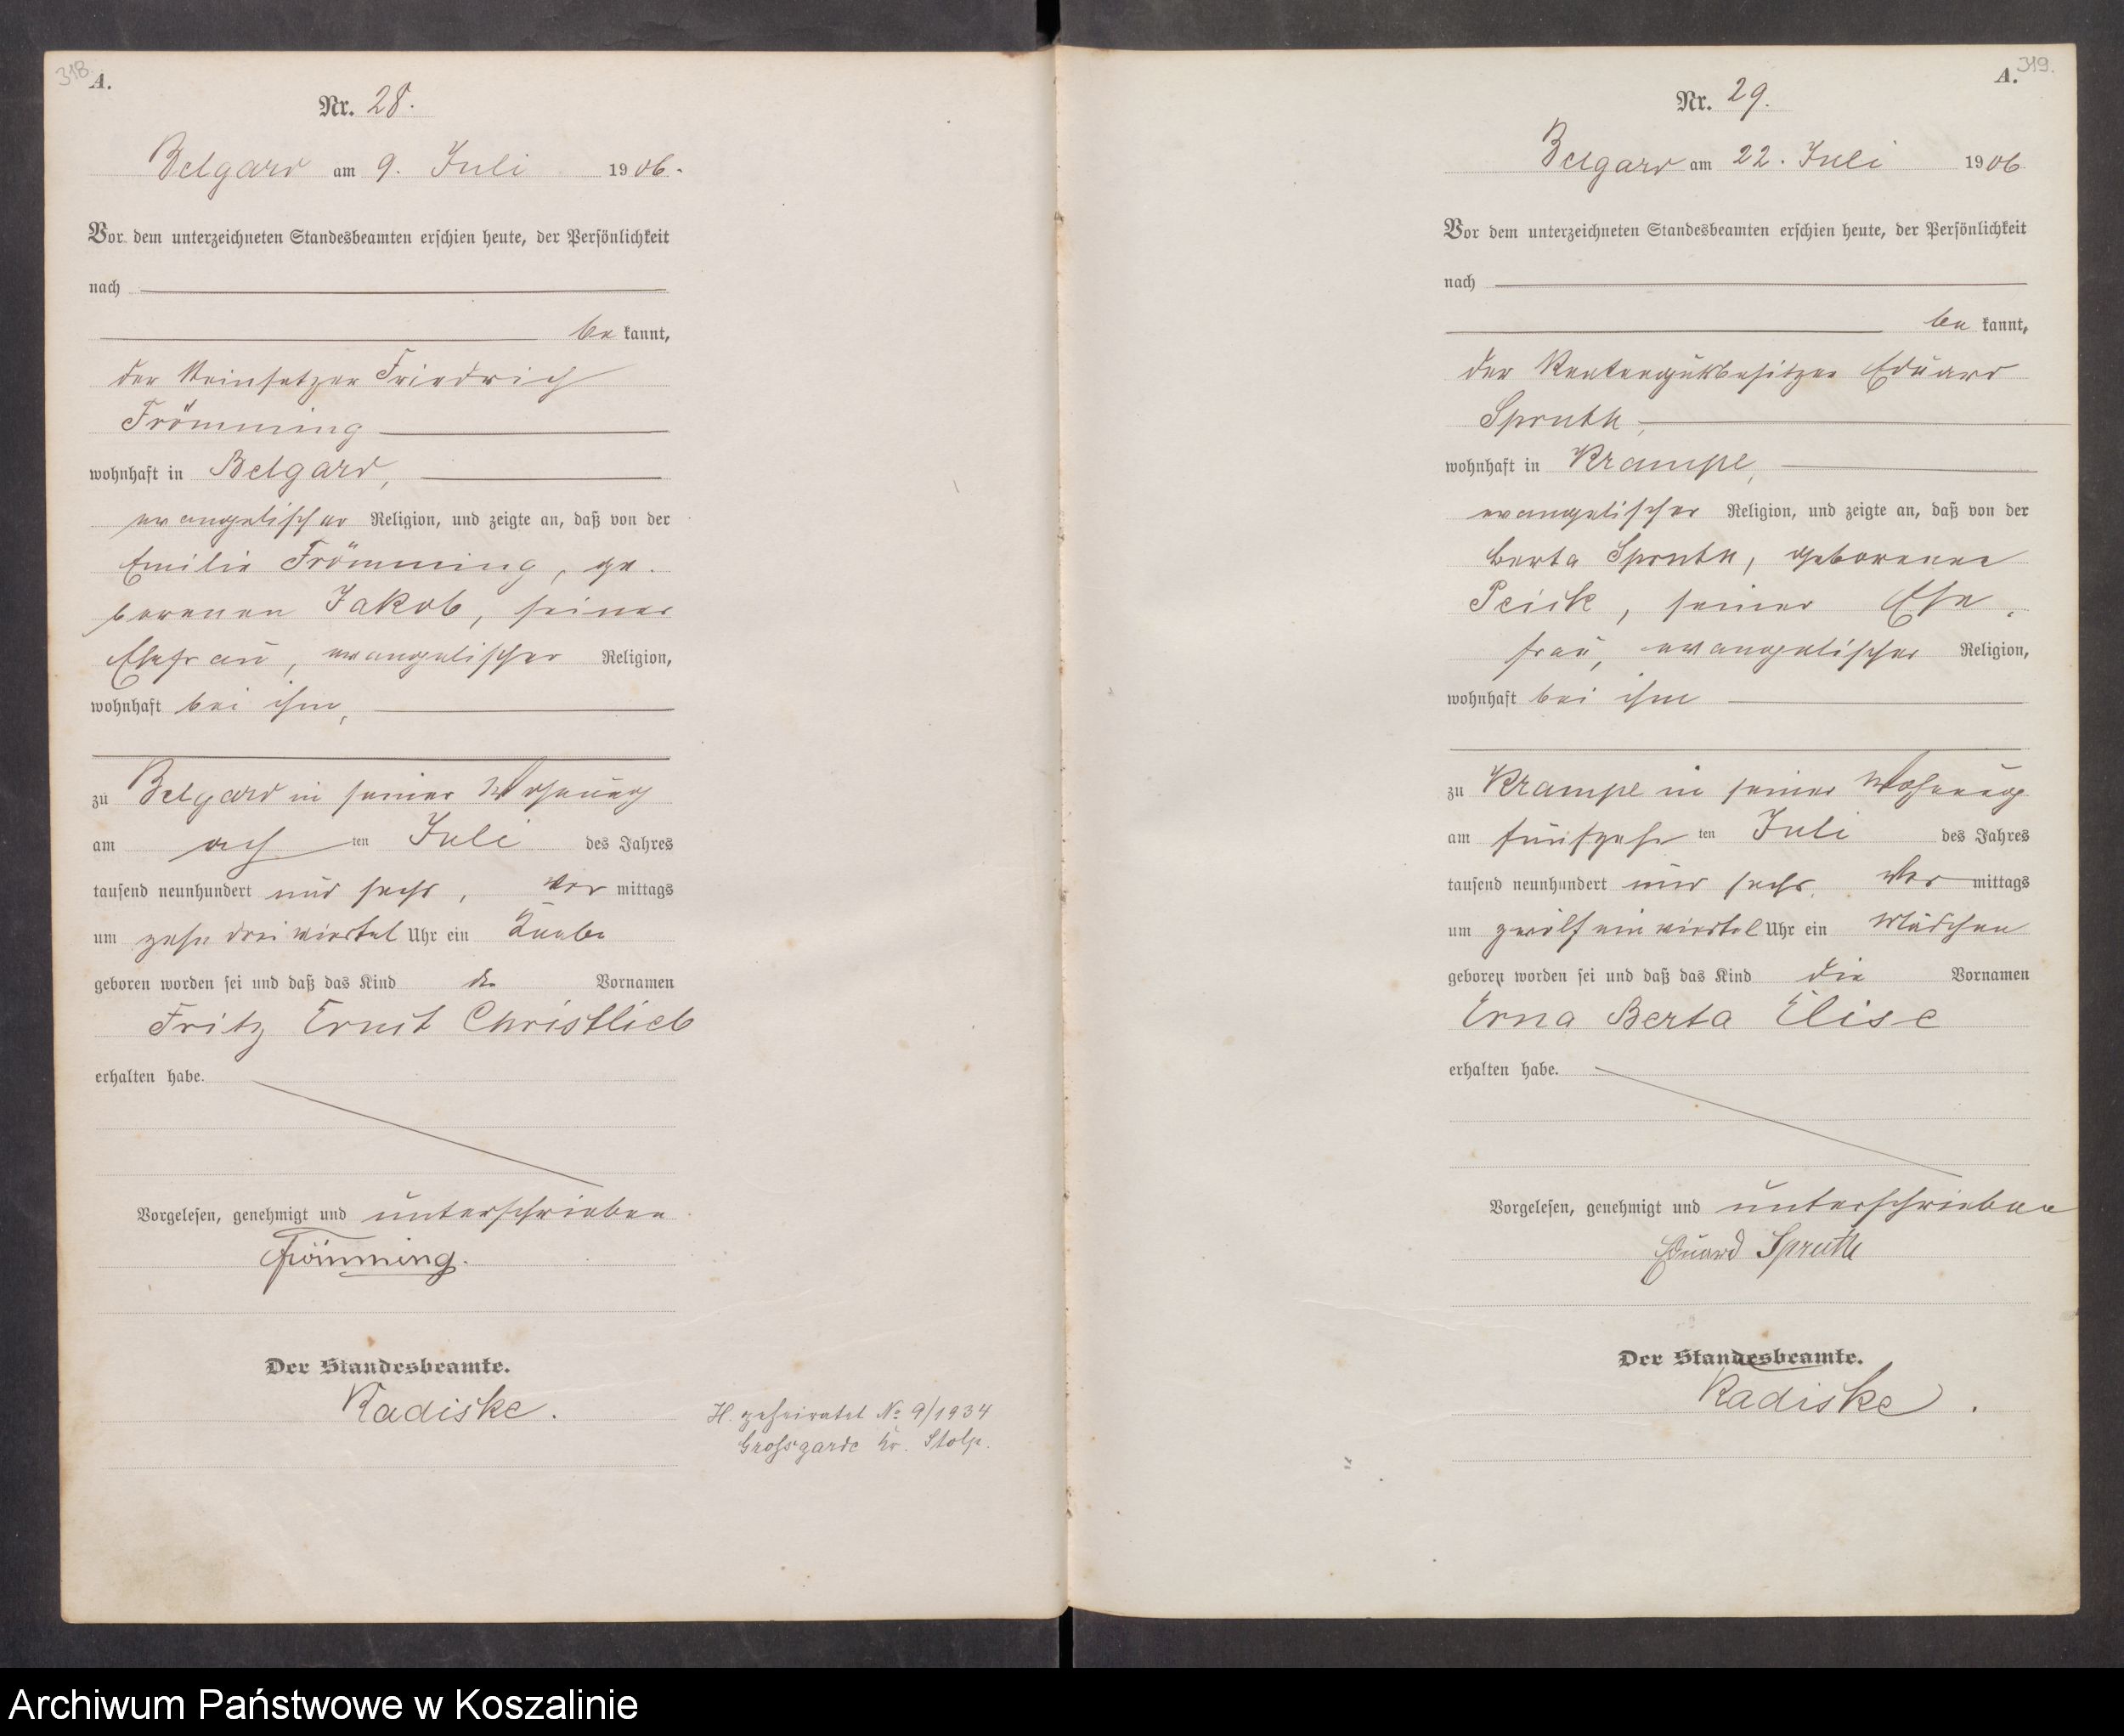 318.
A.
Nr. 28.
Belgard am 9. Juli 1906.
Vor dem unterzeichneten Standesbeamten erschien heute, der Persönlichkeit
nach
be kannt,
der Steinsetzer Friedrich
Frömming
wohnhaft in Belgard,
evangelischer Religion, und zeigte an, daß von der
Emilie Frömming, ge-
borenen Jakob, seiner
Ehefrau, evangelischer Religion,
wohnhaft bei ihm,
zu Belgard in seiner Wohnung
am ach ten Juli des Jahres
tausend neunhundert und sechs, Vor mittags
um zehn dreiviertel Uhr ein Knabe
geboren worden sei und daß das Kind die Vornamen
Fritz Ernst Christlieb
erhalten habe.
Vorgelesen, genehmigt und unterschrieben
Frömming.
Der Standesbeamte.
Radiske.
H. geheiratet No 9/1934
Grossgarde Kr. Stolp.
319.
A.
Nr. 29.
Belgard am 22. Juli 1906
Vor dem unterzeichneten Standesbeamten erschien heute, der Persönlichkeit
nach
be kannt,
der Rentengutsbesitzer Eduard
Spruth,
wohnhaft in Krampe,
evangelischer Religion, und zeigte an, daß von der
Berta Spruth, geborenen
Peick, seiner Ehe-
frau, evangelischer Religion,
wohnhaft bei ihm
zu Krampe in seiner Wohnung
am fünfzehn ten Juli des Jahres
tausend neunhundert und sechs, Vor mittags
um zwölf ein viertel Uhr ein Mädchen
geboren worden sei und daß das Kind die Vornamen
Erna Berta Elise
erhalten habe.
Vorgelesen, genehmigt und unterschrieben
Eduard Spruth
Der Standesbeamte.
Radiske.
Archiwum Państwowe w Koszalinie